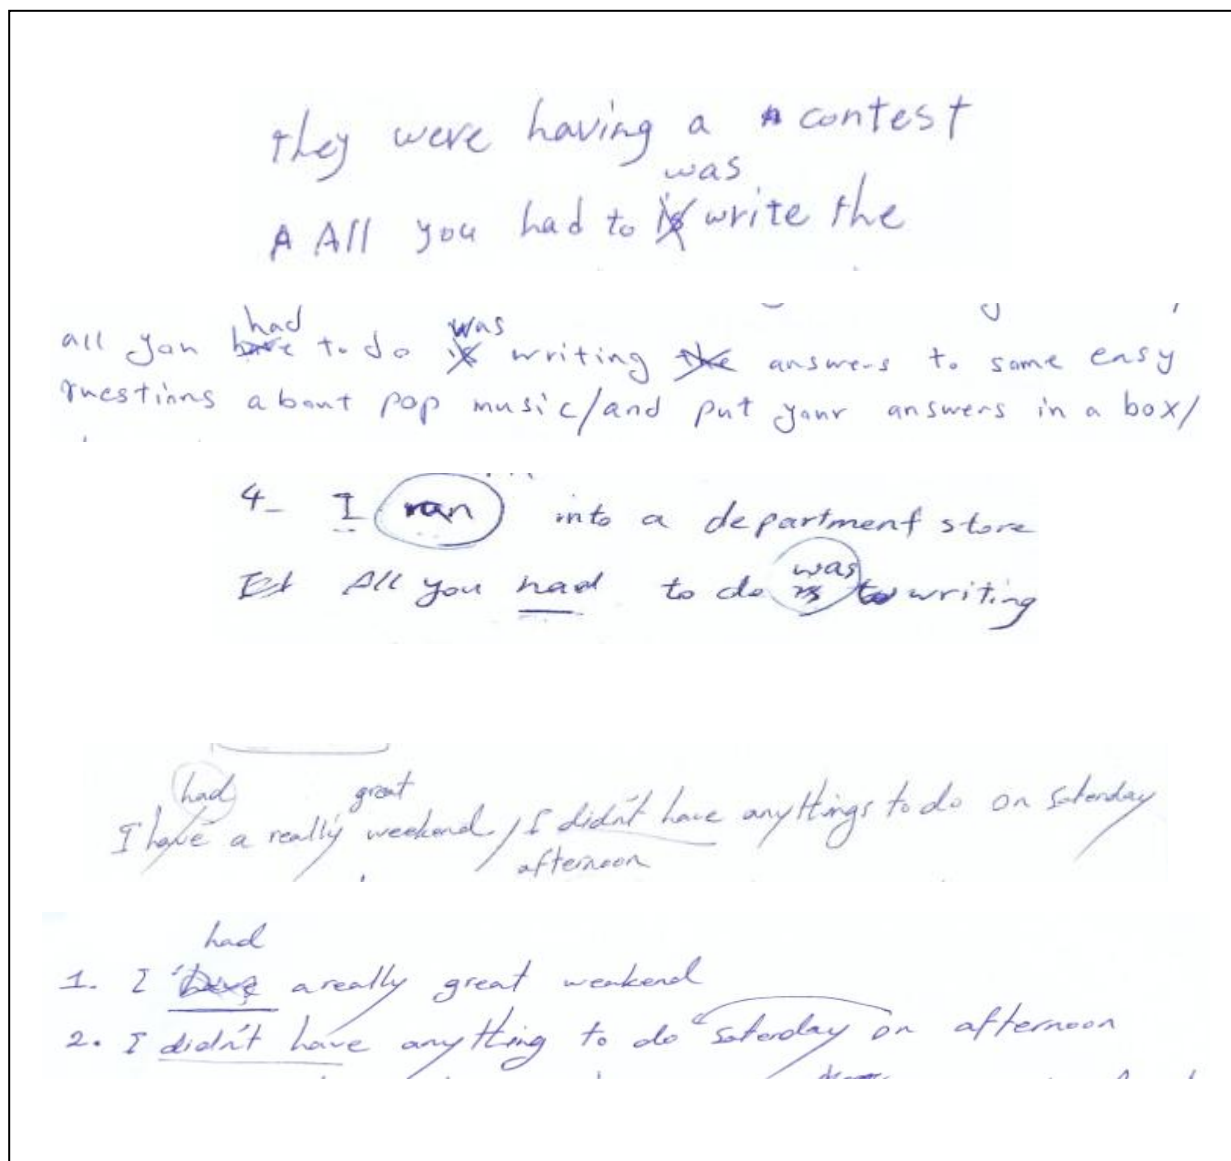 they were having a contest
was
A All you had to is write the
had was
all you have to do is writing the answers to some easy
questions about pop music/and put your answers in a box/
4- I ran into a department store
was
All you had to do is to writing
had great
I have a really weekend/I didn't have anythings to do on saterday
afternoon
had
1. I have a really great weekend
2. I didn't have anything to do saterday on afternoon